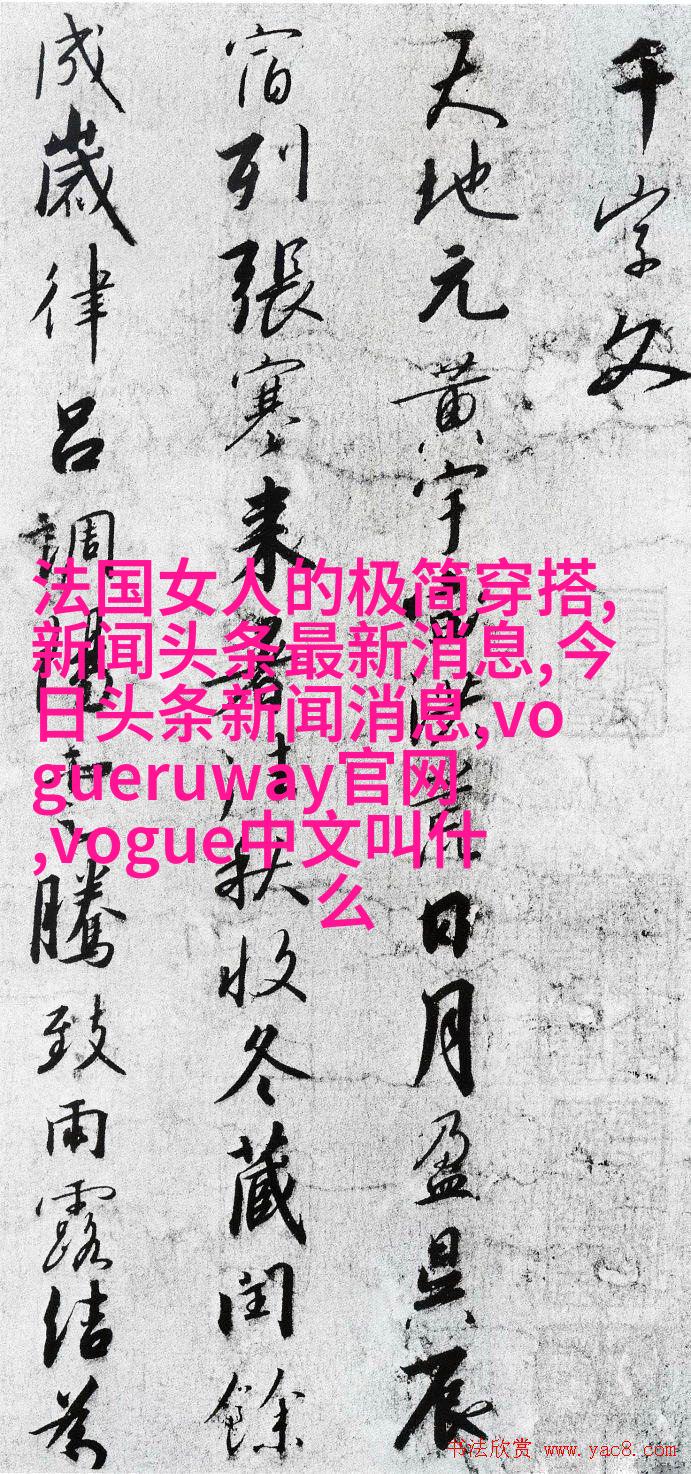 千字文
天地元黄宇宙洪荒日月盈昃辰
宿列張寒来暑往秋收冬蔵閏餘
成歲律吕調陽雲騰致雨露結為
法国女人的极简穿搭,
新闻头条最新消息,今
日头条新闻消息,vo
gueruway官网
,vogue中文叫什
么
书法欣赏 www.yac8.com